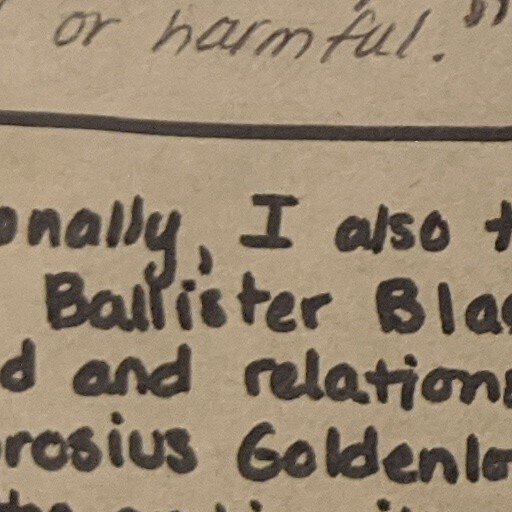 or harmful."
onally, I also t
Ballister Bla
d and relations
rosius Goldenlo